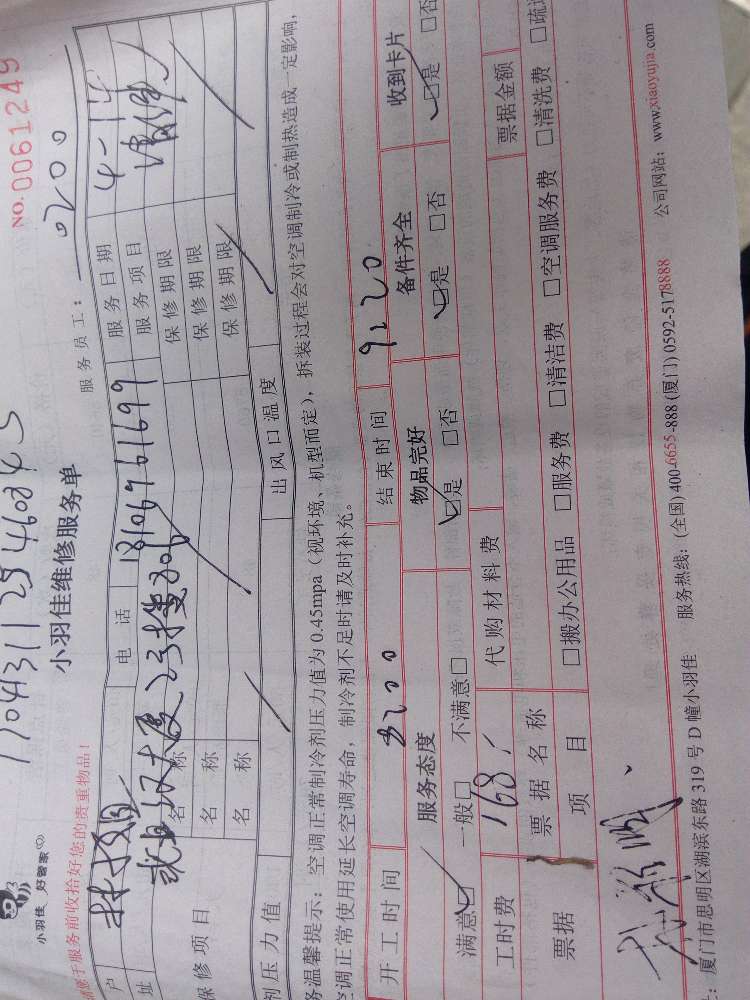 NO. 0061249
小羽佳 好管家
小羽佳维修服务单
服务员工： 0200
请您于服务前收拾好您的贵重物品！
户 电 话 18106961699 服务日期 4-14
址 服务项目
保修项目 名 称 保修期限
名 称 保修期限
名 称 保修期限
剂压力值 出风口温度
务温馨提示：空调正常制冷剂压力值为0.45mpa（视环境、机型而定），拆装过程会对空调制冷或制热造成一定影响，
空调正常使用延长空调寿命，制冷剂不足时请及时补充。
开工时间 结束时间
服务态度 物品完好 备件齐全 收到卡片
满意☑ 一般□ 不满意□ ☑是 □否 ☑是 □否 ☑是 □否
工时费 168 代购材料费
票据 票据名称 票据金额
项 目 □搬办公用品 □服务费 □清洁费 □空调服务费 □清洗费 □疏
厦门市思明区湖滨东路319号D幢小羽佳 服务热线：(全国)400-6655-888 (厦门)0592-5178888 公司网站：www.xiaoyujia.com